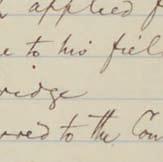 applied f
to his fiel
ridge
rred to the Com